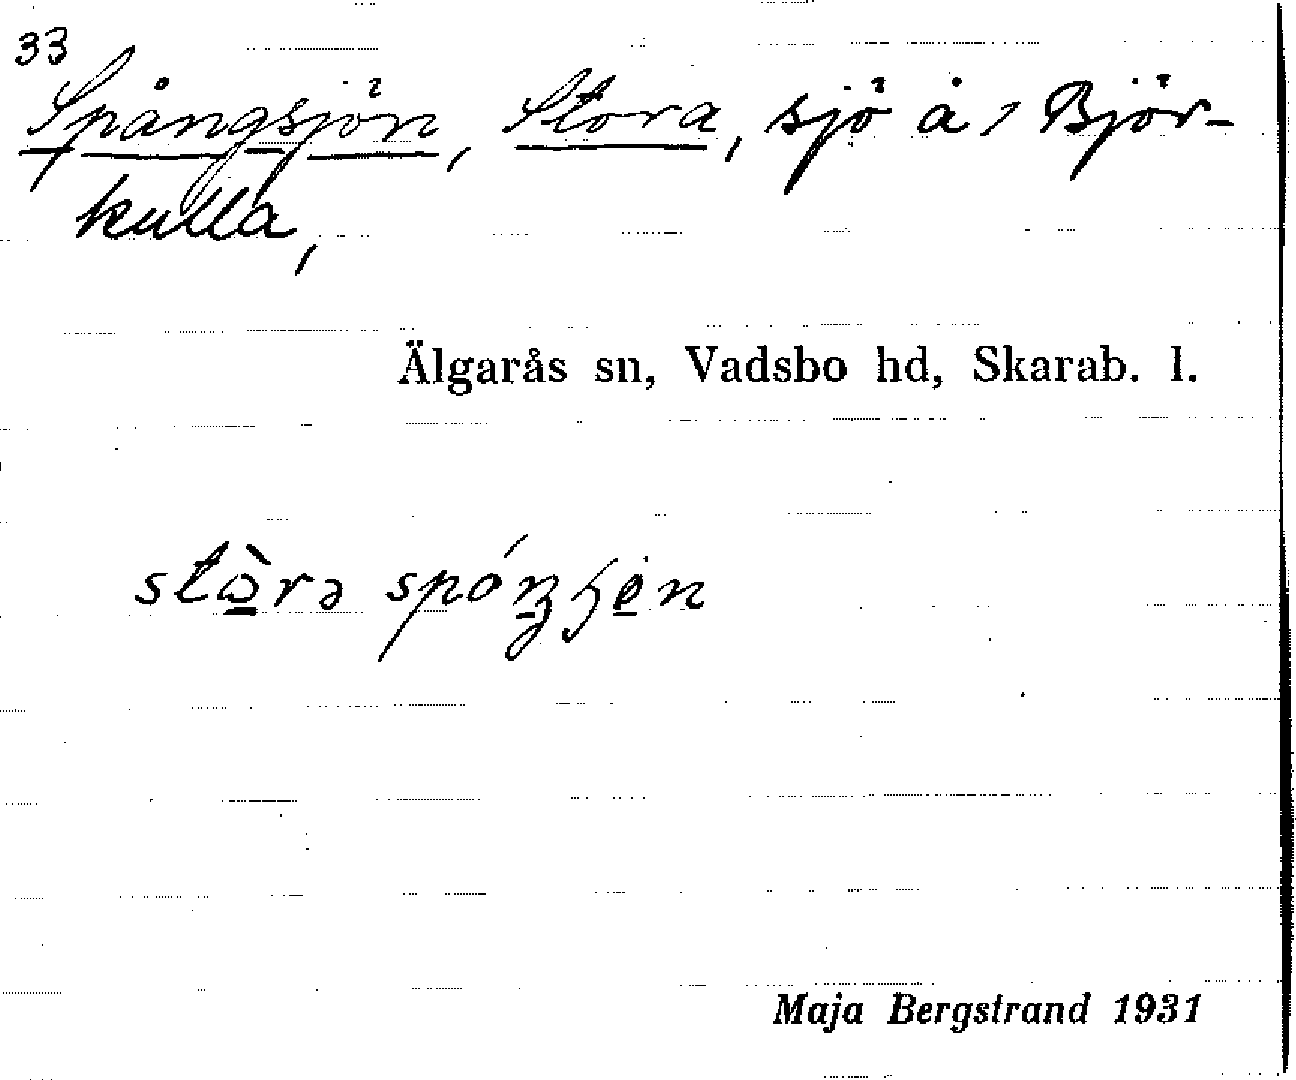 33
Spångsjön, Stora, sjö å, Björ-
kulla,
Älgarås sn, Vadsbo hd, Skarab. l.
stὼ̲rə spóŋɧe̲n
Maja Bergstrand 1931